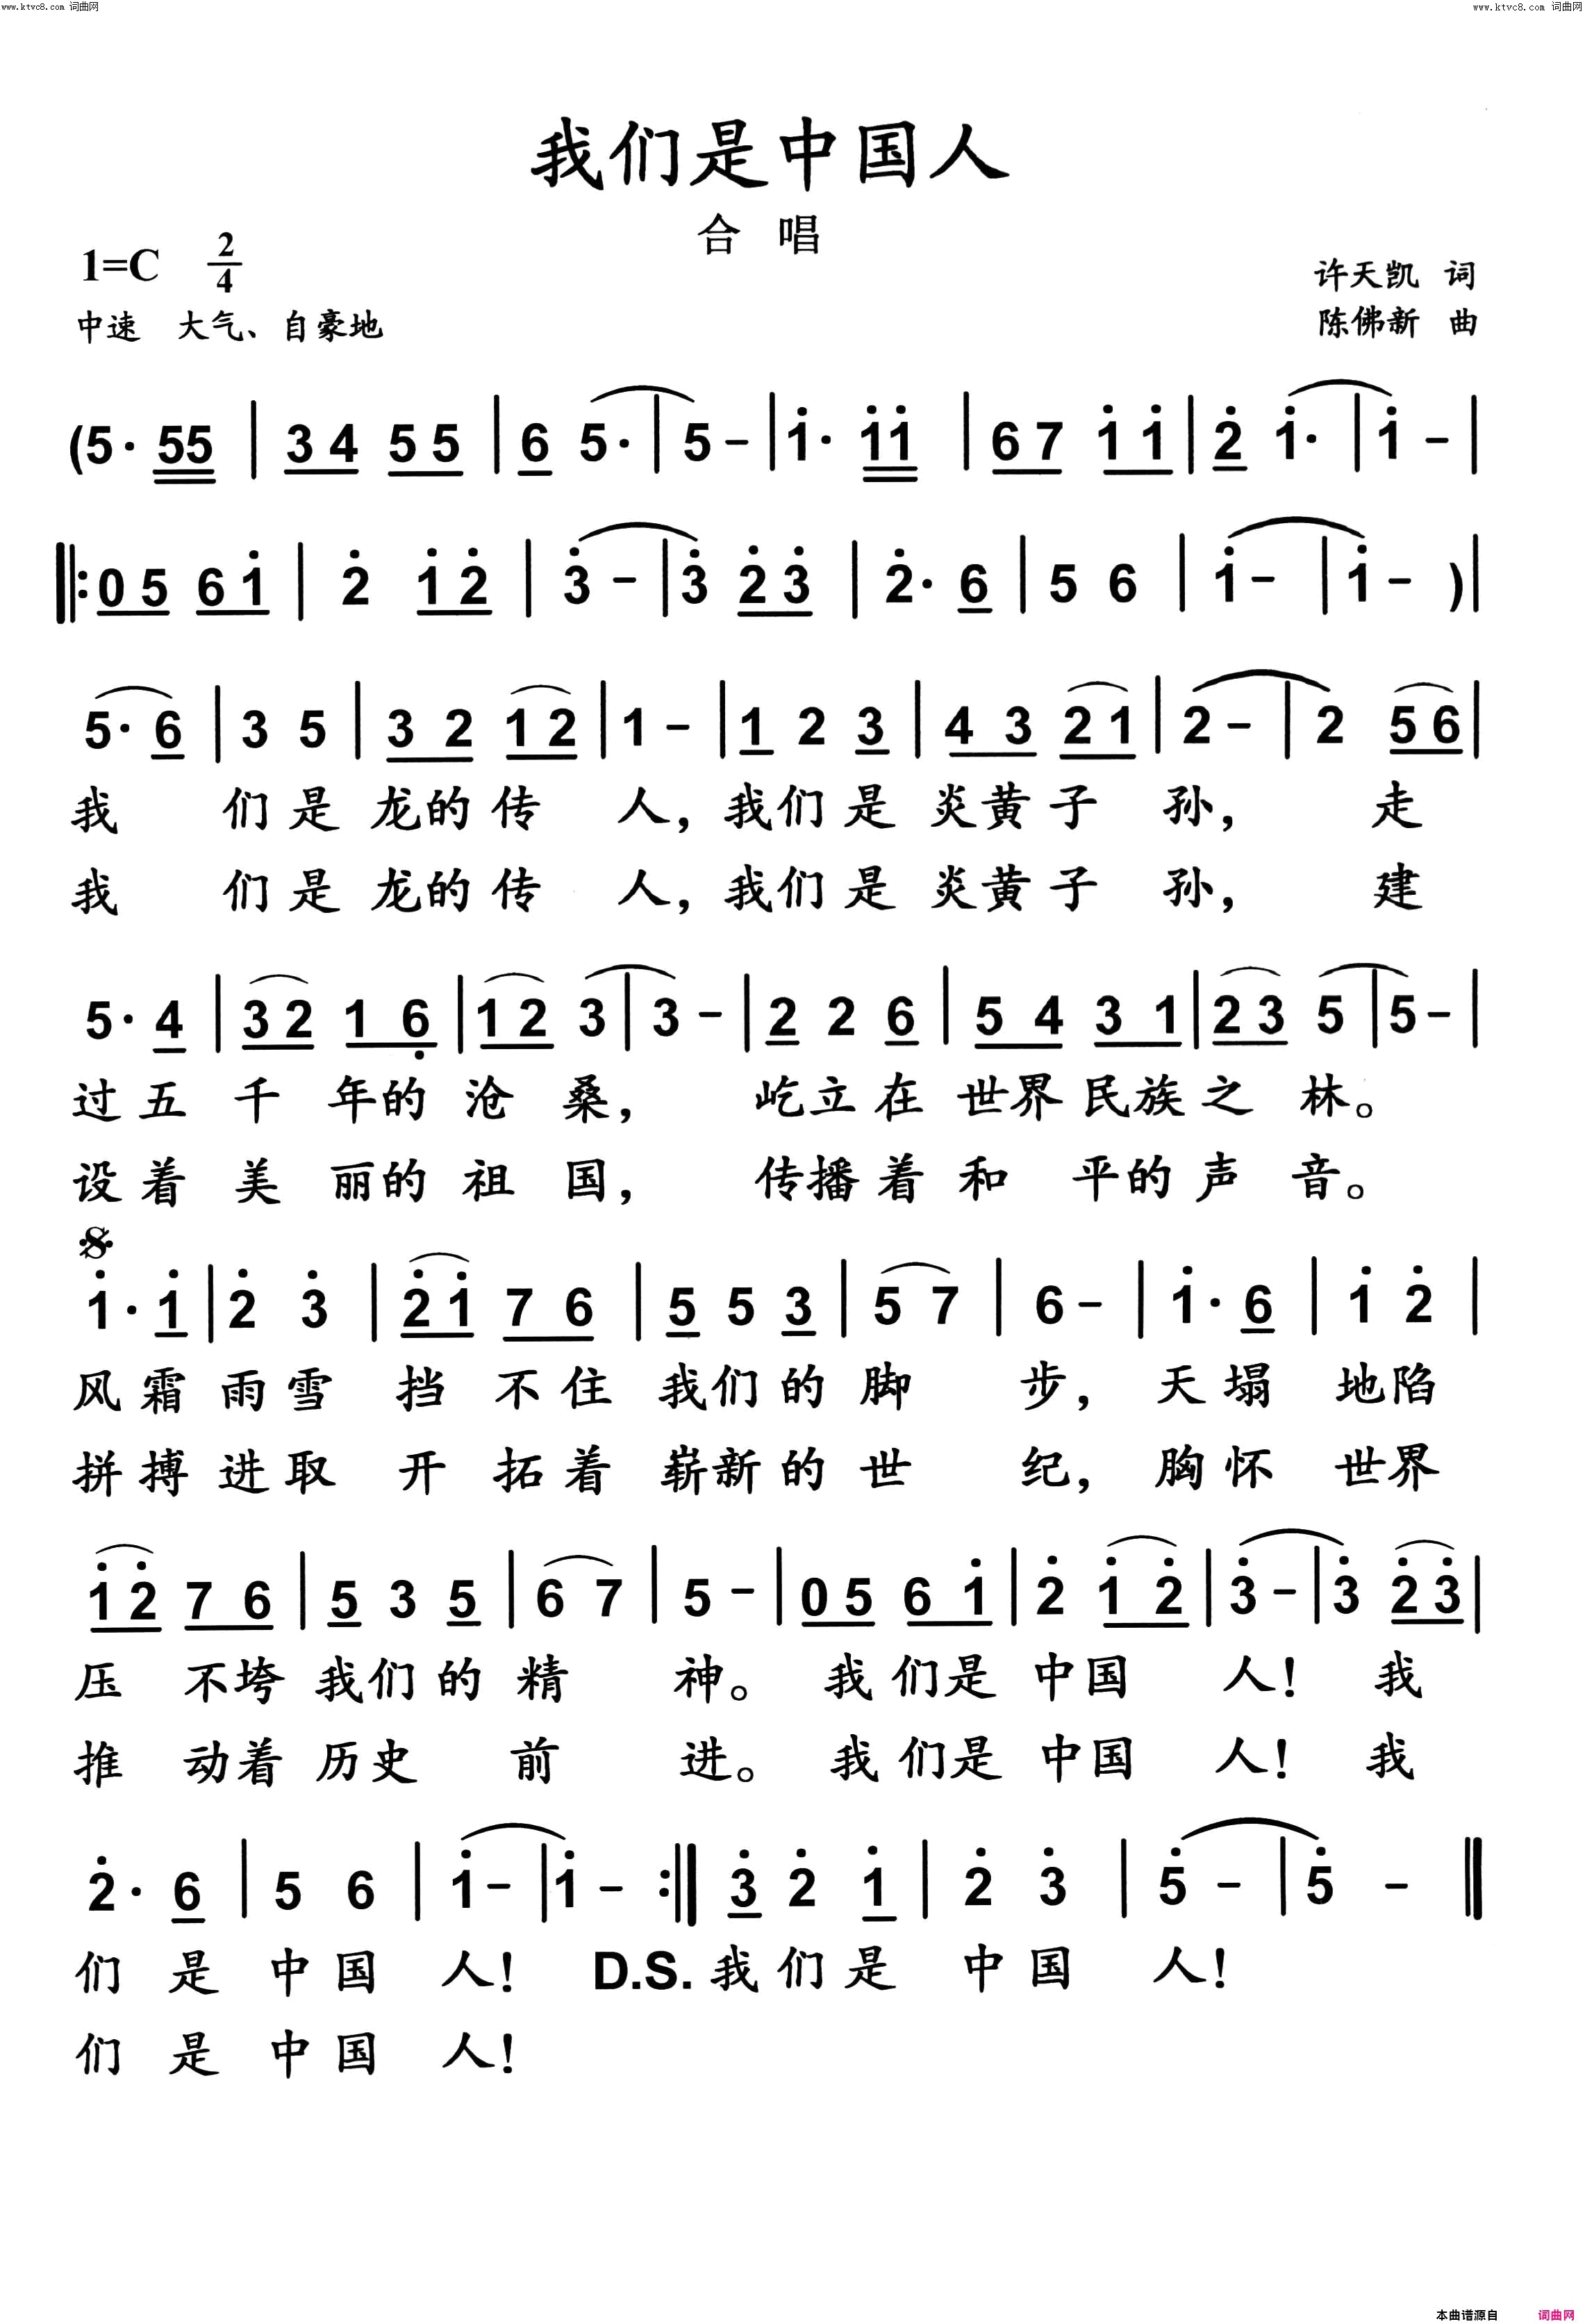 www.ktvc8.com 词曲网
www.ktvc8.com 词曲网
我们是中国人
合 唱
1=C 2/4
许天凯 词
中速 大气、自豪地
陈佛新 曲
(5· 55 | 34 55 | 6 5· | 5 - | i· ii | 67 ii | 2̇ i· | i - |
‖: 05 6i | 2̇ i2̇ | 3̇ - | 3̇ 2̇3̇ | 2̇· 6 | 5 6 | i - | i - )|
5· 6 | 3 5 | 32 12 | 1 - | 1 2 3 | 43 21 | 2 - | 2 56 |
我 们是龙的传 人,我们是炎黄子 孙, 走
我 们是龙的传 人,我们是炎黄子 孙, 建
5· 4 | 32 16̣ | 12 3 | 3 - | 2 2 6 | 54 31 | 23 5 | 5 - |
过五千年的沧桑, 屹立在世界民族之林。
设着美丽的祖国, 传播着和平的声音。
i· i | 2̇ 3̇ | 2̇i 76 | 5 5 3 | 5 7 | 6 - | i· 6 | i 2̇ |
风霜雨雪挡不住我们的脚 步,天塌地陷
拼搏进取开拓着崭新的世 纪,胸怀世界
i2̇ 76 | 5 3 5 | 6 7 | 5 - | 05 6i | 2̇ i2̇ | 3̇ - | 3̇ 2̇3̇ |
压 不垮我们的精 神。 我们是中国 人! 我
推 动着历史 前 进。 我们是中国 人! 我
2̇· 6 | 5 6 | i - | i - :‖ 3̇ 2̇ i | 2̇ 3̇ | 5̇ - | 5̇ - ‖
们是中国 人! D.S. 我们是 中国 人!
们是中国 人!
本曲谱源自 词曲网